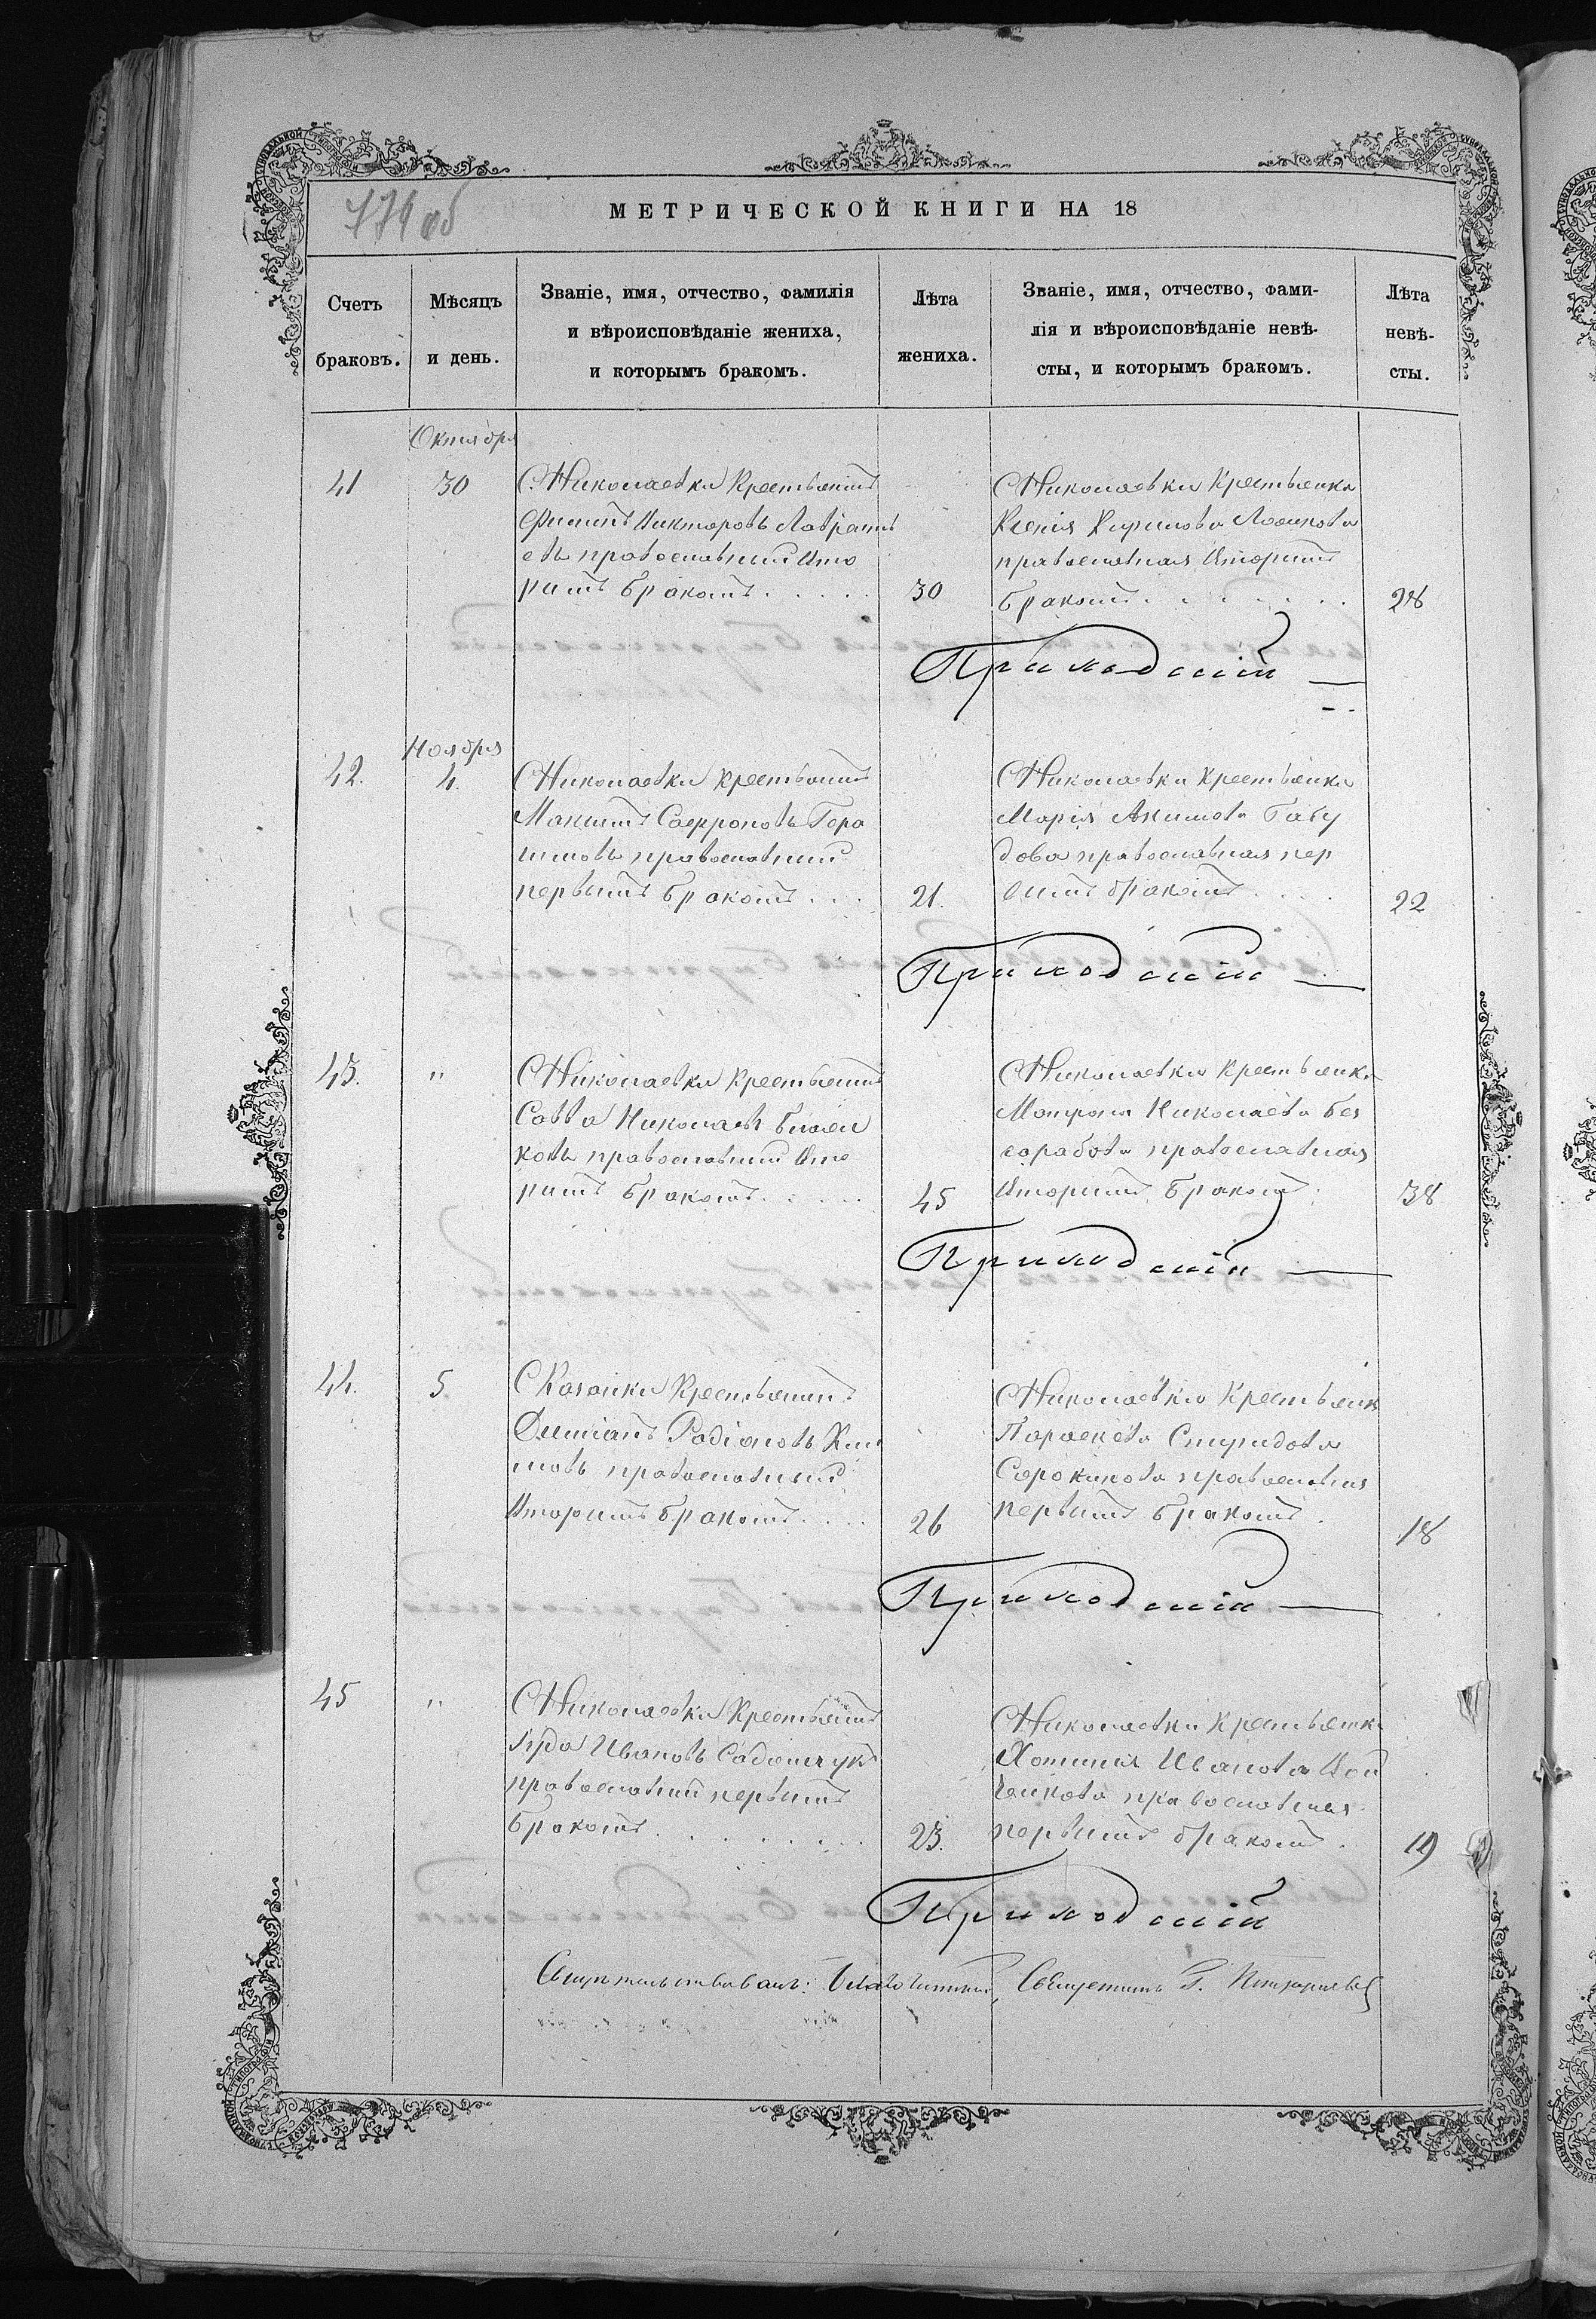 174 об
МЕТРИЧЕСКОЙ КНИГИ НА 18
Счетъ браковъ.
Мѣсяцъ и день.
Званіе, имя, отчество, фамилія
и вѣроисповѣданіе жениха,
и которымъ бракомъ.
Лѣта жениха.
Званіе, имя, отчество, фами-
лія и вѣроисповѣданіе невѣ-
сты, и которымъ бракомъ.
Лѣта невѣ-
сты.
Октября
41
30
С. Николаевки Крестьянинъ
Филипъ Викторовъ Лаврент
евъ православный вто
рымъ бракомъ
30
С Николаевки Крестьянка
Ксенія Кирилова
православная вторымъ
бракомъ
28
Приходскій
Ноября
42.
4.
С Николаевки Крестьянинъ
Макимъ Сафроновъ Гера
симовъ православный
первымъ бракомъ
21.
С Николаевки Крестьянка
Марія Акимова Бабу
дова православная пер
вымъ бракомъ
22
Приходскій
43.
"
С Николаевки Крестьянинъ
Савва Николаевъ
ковъ православный вто
рымъ бракомъ
45
С Николаевки Крестьянка
Матрона Николаева Без
православная
вторымъ бракомъ
38
Приходскій
44.
5
С Казанки Крестьянинъ
Демианъ Радіоновъ Кли
мовъ православный
вторымъ бракомъ
26
С Николаевки Крестьянк
Параскева Спиридова
Сорокинова православная
первымъ бракомъ
18
Приходскій
45
"
С Николаевки Крестьянинъ
Ивановъ
православный первымъ
бракомъ
23.
С Николаевки Крестьянка
Хотинія Иванова Вой
ченкова православная
первымъ бракомъ
19
Приходскій
Свидѣтельствовалъ: Благочинный, Священникъ